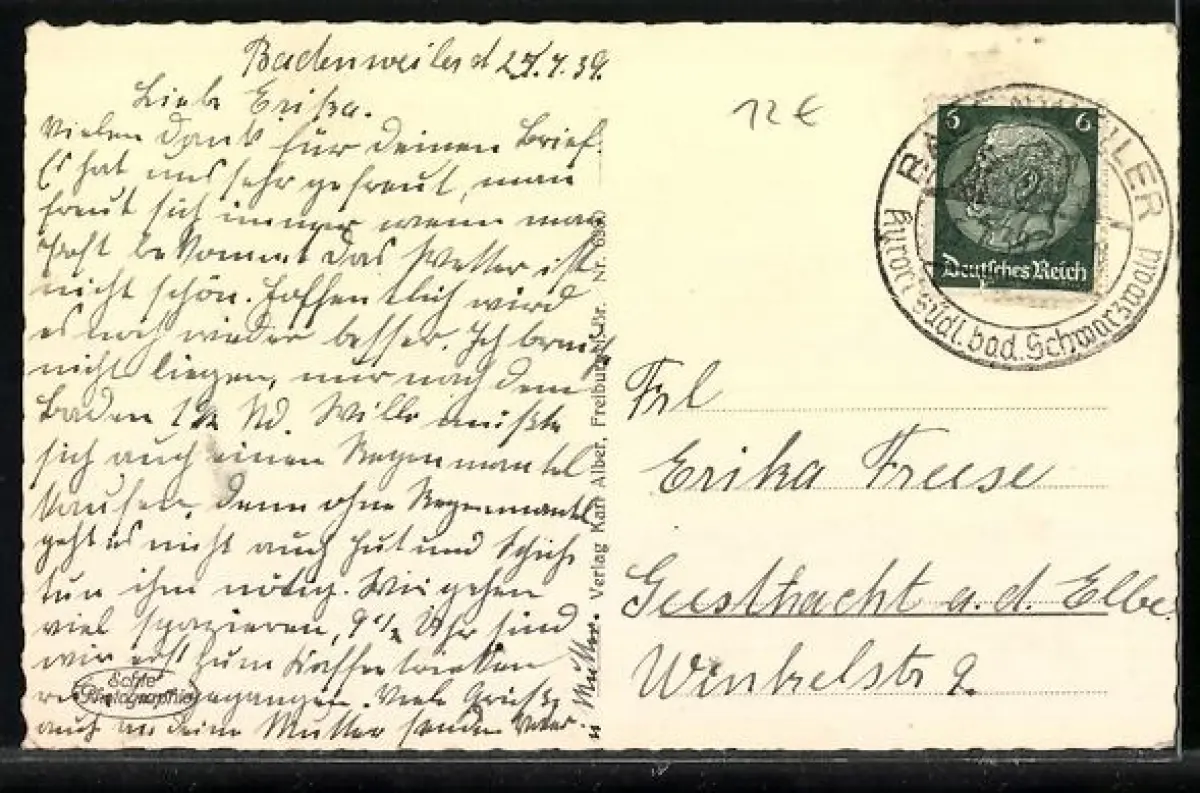 Badenweiler d 27.7.39.
Liebe Erika.
Vielen Dank für deinen Brief.
Es hat uns sehr gefreut, man
freut sich immer wenn man
Post bekommt das Wetter ist
nicht schön. Hoffentlich wird
es noch wieder besser. Ich brauch
nicht liegen, nur nach dem
Baden 1½ Std. Willi mußte
sich auch einen Regenmantel
kaufen, denn ohne Regenmantel
geht es nicht auch Hut und Schuh
tun ihm nötig. Wir gehen
viel spazieren, 9½ Uhr sind
wir erst zum Kaffee trinken
gegangen. Viele Grüße
auch an deine Mutter sendet Vater
u Mutter.
Echte
Photographie
Verlag Karl Alber, Freiburg i. Br. Nr. 69
12 €
6 6
Deutsches Reich
BADENWEILER
Kurort südl. bad. Schwarzwald
Frl
Erika Freese
Geesthacht a.d. Elbe.
Winkelstr 9.